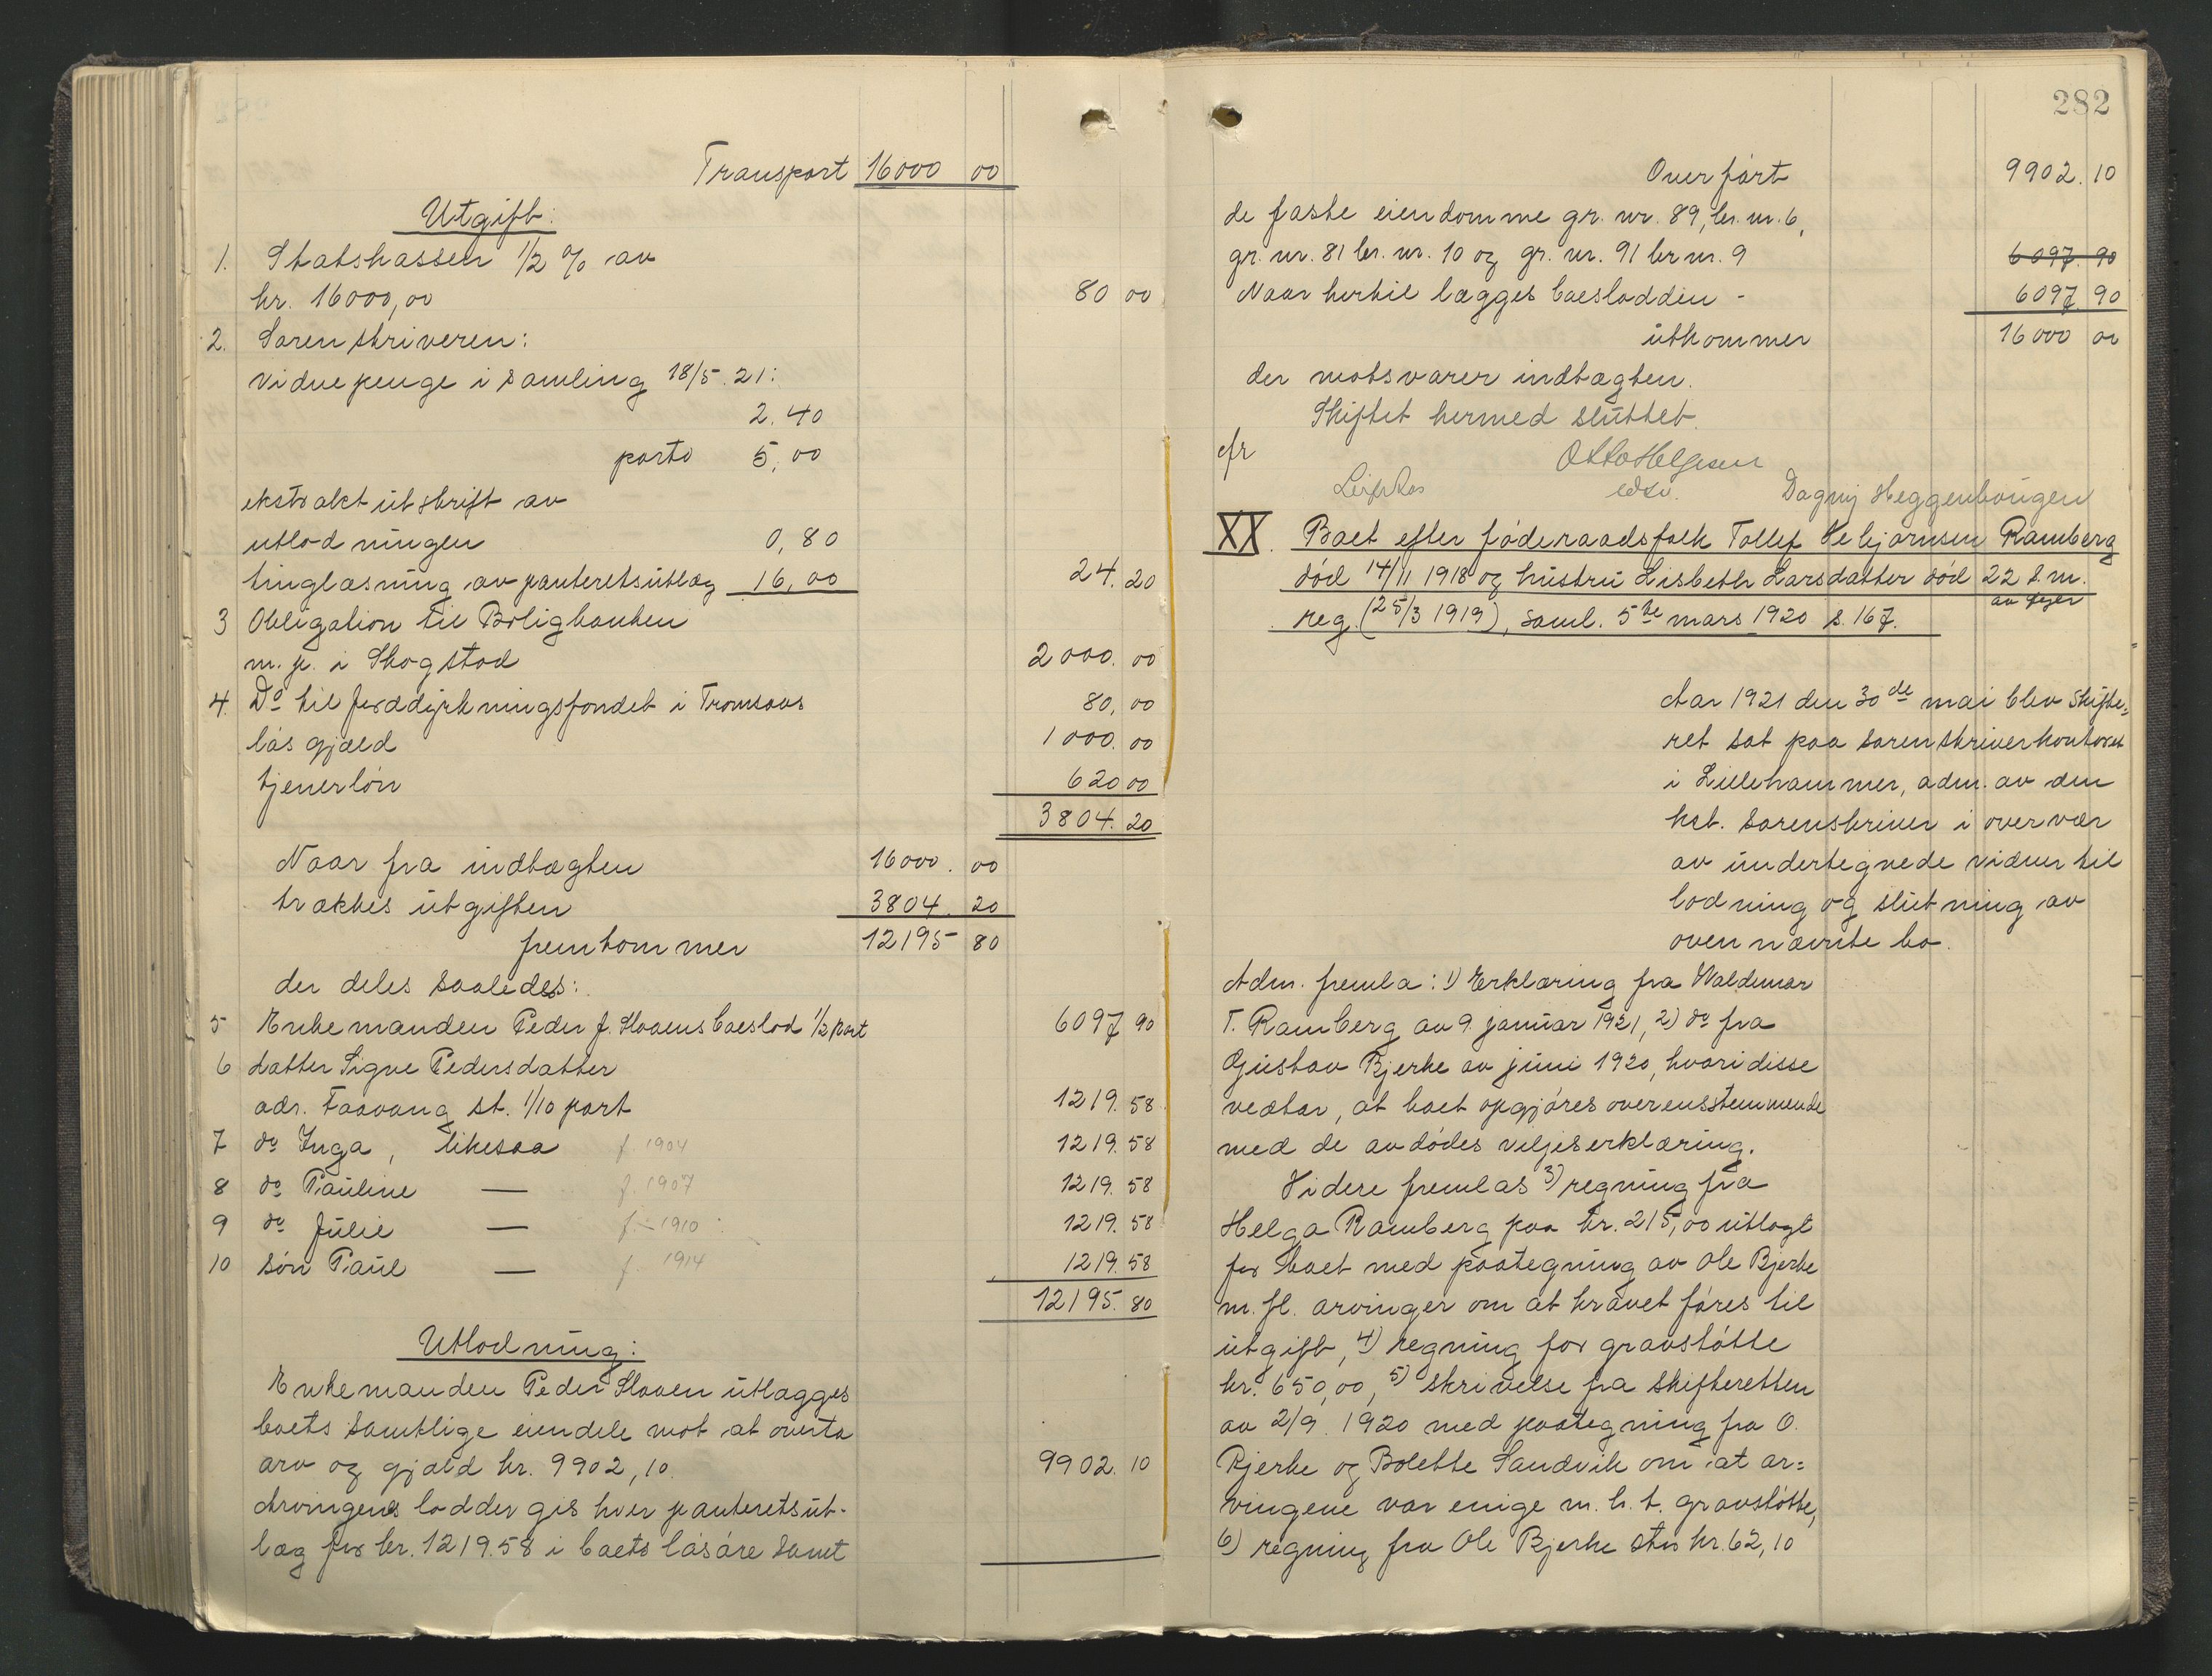 Transport 16000 00
Utgift:
1. Statskassen 1/2 % av
kr. 16000,00 80 00
2. Sorenskriveren:
vidnepenge i samling 18/5 21:
2.40
porto 5,00
ekstraktutskrift av
utlodningen 0,80
tinglæsning av panteretsutlæg 16,00 24.20
3 Obligation til Boligbanken
m. p. i Skogstad 2000.00
4. Do til jorddyrkningsfondet i Tromsøes 80,00
løs gjæld 1000.00
tjenerløn 620 00
3804.20
Naar fra indtægten 16000.00
trækkes utgiften 3804.20
fremkommer 12195 80
der deles saaledes:
5 Enkemanden Peder J. Slaaens boeslod 1/2 part 6097 90
6 datter Signe Pedersdatter
adr. Faavang st. 1/10 part 1219.58
7 do Inga, likesaa f. 1904 1219.58
8 do Pauline — f. 1907 1219.58
9 do Julie — f. 1910 1219.58
10 søn Paul — f. 1914 1219.58
12195.80
Utlodning:
Enkemanden Peder Slaaen utlægges
boets samtlige eiendele mot at overta
arv og gjæld kr. 9902,10. 9902.10
Arvingenes lodder gis hver panteretsut-
læg for kr. 1219.58 i boets løsøre samt
282
Overført 9902.10
de faste eiendomme gr. nr. 89, br. nr. 6,
gr. nr. 81 br. nr. 10 og gr. nr. 91 br nr. 9 6097.90
Naar hertil lægges boeslodden - 6097.90
utkommer 16000 00
der motsvarer indtægten.
Skiftet hermed sluttet.
efr Otto Helgesen
edsv. Dagny Heggenhougen
XX. Boet efter føderaadsfolk Tollef Vebjørnsen Ramberg
død 14/11 1918 og hustru Lisbeth Larsdatter død 22 s. m.
av Øyer
reg. (25/3 1919), saml. 5te mars 1920 s. 167.
Aar 1921 den 30de mai blev skifte=
ret sat paa sorenskriverkontoret
i Lillehammer, adm. av den
kst. sorenskriver i overvær
av undertegnede vidner til
lodning og slutning av
ovennævnte bo.
Adm. fremla: 1) Erklæring fra Waldemar
T. Ramberg av 9. januar 1921, 2) do fra
Gustav Bjerke av juni 1920, hvori disse
vedtar, at boet opgjøres overensstemmende
med de avdødes viljeserklæring.
Videre fremlas 3) regning fra
Helga Ramberg paa kr. 215,00 utlagt
for boet med paategning av Ole Bjerke
m. fl. arvinger om at kravet føres til
utgift, 4) regning for gravstøtte
kr. 650,00, 5) skrivelse fra skifteretten
av 2/9. 1920 med paategning fra O.
Bjerke og Bolette Sandvik om at ar=
vingene var enige m. h. t. gravstøtte,
6) regning fra Ole Bjerke stor kr. 62,10